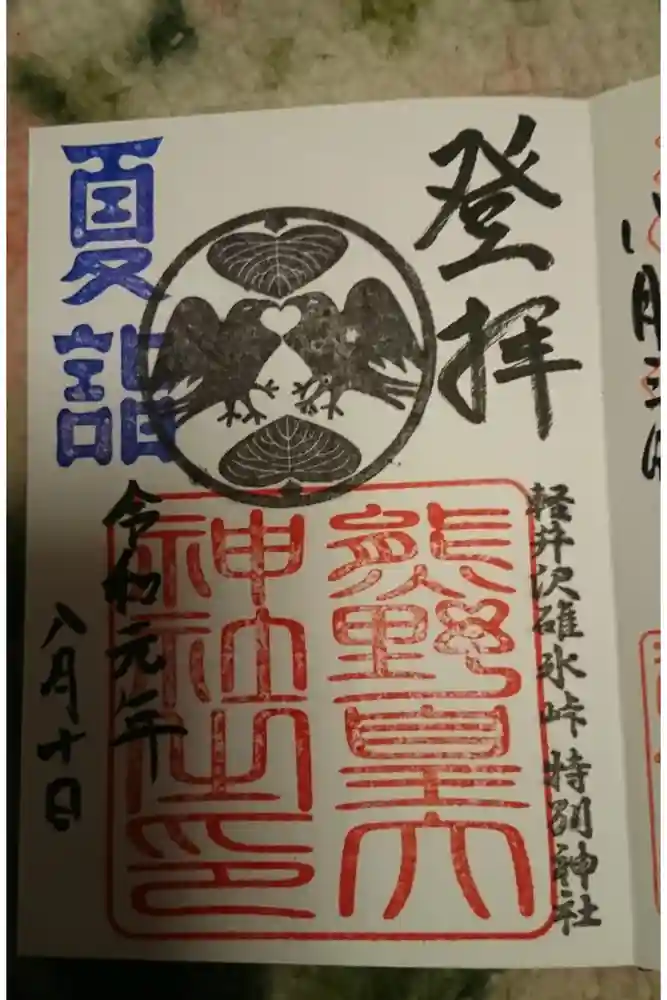 登拝
軽井沢碓氷峠特別神社
熊野皇大
神社之印
夏詣
令和元年
八月十日